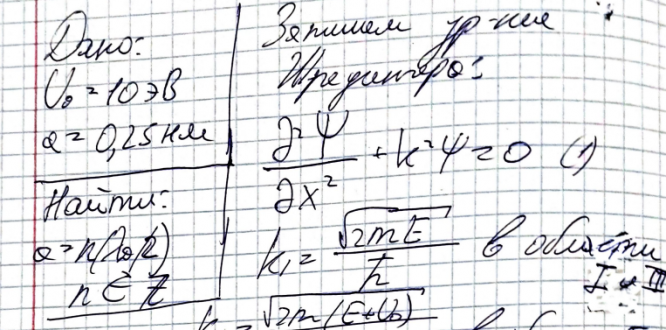 Дано:
U₀ = 10 эВ
a = 0,25 нм
Найти:
a = n(λ₂/2)
n ∈ Z
Запишем ур-ние
Шредингера:
∂²Ψ/∂x² + k²Ψ = 0 (1)
k₁ = √2mE/ħ в области
I и III
√2m(E+U₀)